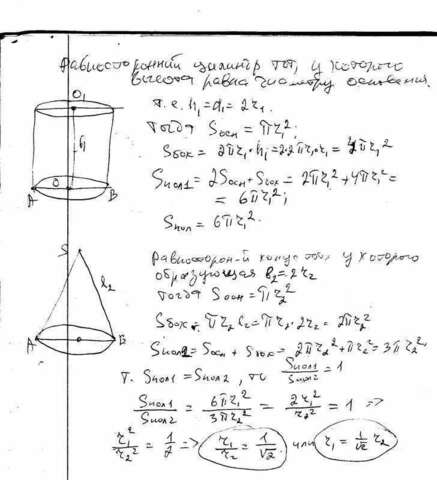 Равносторонний цилиндр тот, у которого
высота равна диаметру основания.
O₁
т. е. h₁ = d₁ = 2r₁.
Тогда Sосн = πr₁²;
h₁
Sбок = 2πr₁·h₁ = 2·2πr₁·r₁ = 4πr₁²
O
A
B
Sпол1 = 2Sосн + Sбок = 2πr₁² + 4πr₁² =
= 6πr₁²;
Sпол = 6πr₁².
S
Равносторонний конус тот у которого
образующая l₂ = 2r₂
l₂
тогда Sосн = πr₂²
Sбок = πr₂l₂ = πr₂·2r₂ = 2πr₂²
A
B
Sпол2 = Sосн + Sбок = 2πr₂² + πr₂² = 3πr₂²
т. Sпол1 = Sпол2, то Sпол1/Sпол2 = 1
Sпол1/Sпол2 = 6πr₁²/3πr₂² = 2r₁²/r₂² = 1 =>
r₁²/r₂² = 1/2 => r₁/r₂ = 1/√2 или r₁ = 1/√2 r₂